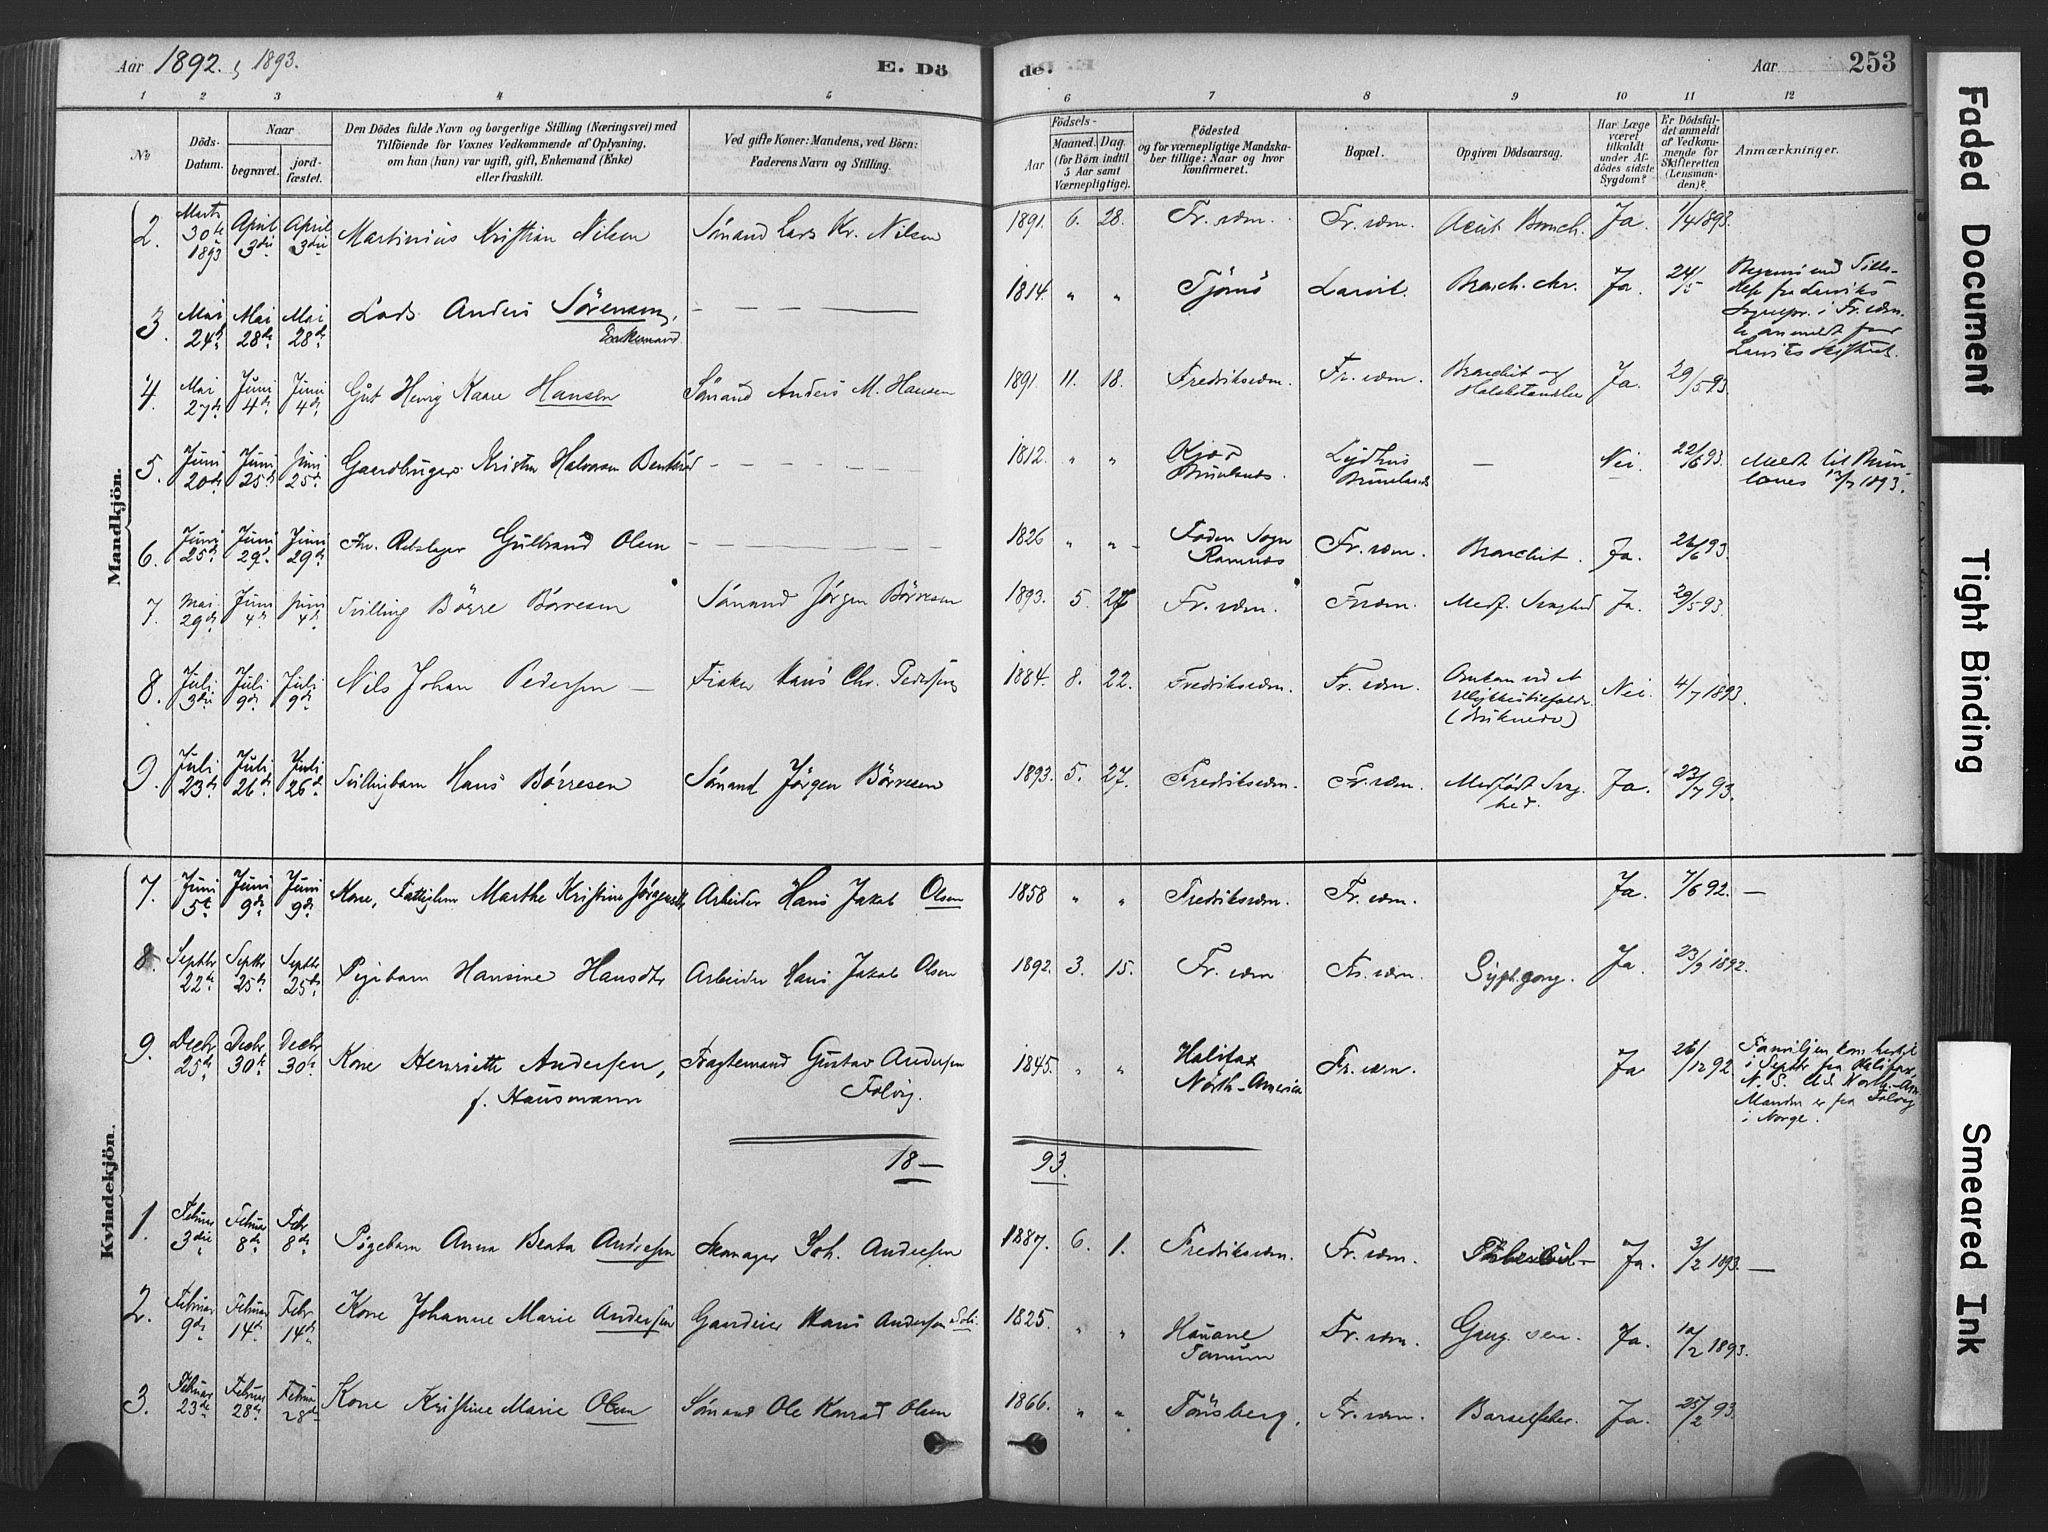 Aar 1892. & 1893. E. Dö de. Aar 253
1 2 3 4 5 6 7 8 9 10 11 12
No
Döds-
Datum.
Naar
begravet.
jord-
fæstet.
Den Dödes fulde Navn og borgerlige Stilling (Næringsvei) med
Tilföiende for Voxnes Vedkommende af Oplysning,
om han (hun) var ugift, gift, Enkemand (Enke)
eller fraskilt.
Ved gifte Koner: Mandens, ved Börn:
Faderens Navn og Stilling.
Födsels-
Aar
Maaned.
Dag.
(for Börn indtil
5 Aar samt
Værnepligtige).
Födested
og for værnepligtige Mandska-
ber tillige: Naar og hvor
konfirmeret.
Bopæl.
Opgiven Dödsaarsag.
Har Læge
været
tilkaldt
under Af-
dödes sidste
Sygdom?
Er Dödsfal-
det anmeldt
af Vedkom-
mende for
Skifteretten
(Lensman-
den)?
Anmærkninger.
Mandkjön.
2. Marts 30te 1893 April 3die April 3die Martinius Kristian Nilsen Sömand Lars Kr. Nilsen 1891. 6. 28. Fr.værn. Fr.værn. Acut Bronch. Ja. 1/4 1893.
3. Mai 24de Mai 28de Mai 28de Lods Anders Sörensen, Enkemand — 1814. " " Tjömö Larvik. Bronch. chr. Ja. 24/5
i Fr.værn.
4. Mai 27de Juni 4de Juni 4de Gut Henrig Kaare Hansen Sömand Anders M. Hansen 1891. 11. 18. Fredriksværn. Fr.værn. Bronchit og Ja. 29/5 93.
5. Juni 20de Juni 25de Juni 25de Gaardbruger Kristen Halvorsen — 1812. " " Brunlanes. Brunlanes — Nei. 22/6 93. Meldt til Brun-
lanes 1893.
6. Juni 25de Juni 29de Juni 29de Gulbrand Olsen — 1826 " " Sogn Ramnes Fr.værn. Bronchit. Ja. 26/6 93.
7. Mai 29de Juni 4de Juni 4de Tvilling Börre Börresen Sömand Jörgen Börresen 1893. 5. 27 Fr.værn. Fr.værn. Medf. Svaghed Ja. 29/5 93.
8. Juli 3die Juli 9de Juli 9de Nils Johan Pedersen — Fisker Hans Chr. Pedersen 1884. 8. 22. Fredriksværn. Fr.værn. Omkom ved et
Ulykkestilfælde
(druknede) Nei. 4/7 1893.
9. Juli 23de Juli 26de Juli 26de Tvillingbarn Hans Börresen Sömand Jörgen Börresen 1893. 5. 27. Fredriksværn. Fr.værn. Medfödt Svag-
hed. Ja. 23/7 93.
Kvindekjön.
7. Juni 5te Juni 9de Juni 9de Kone, Marthe Kristine Arbeider Hans Jakob Olsen 1858 " " Fredriksværn. Fr.værn. Ja. 7/6 92. —
8. Septbr 22de Septbr 25de Septbr 25de Pigebarn Hansine Hansdtr Arbeider Hans Jakob Olsen 1892. 3. 15. Fr.værn Fr.værn. Ja. 23/9 1892.
9. Decbr 25de Decbr 30te Decbr 30te Kone Henriette Andersen,
f. Hausmann Fragtemand Gustav Andersen
Folvig. 1845. " " Halifax
North-America Fr.værn. Ja. 26/12 92. Familjen kom hertil
i Septbr fra Halifax,
N. S. North-Am.
Manden er fra Folvig
i Norge.
18— 93.
1. Februar 3die Februar 8de Febr 8de Pigebarn Anna Beata Andresen Skomager Joh. Andresen 1887. 6. 1. Fredriksværn. Fr.værn. Ja. 3/2 1893. —
2. Februar 9de Februar 14de Febr 14de Kone Johanne Marie Andersen Hans Andersen 1825. " " Hauane
Tanum Fr.værn. Ja. 10/2 1893.
3. Februar 23de Februar 28de Februar 28de Kone Kristine Marie Olsen Sömand Ole Konrad Olsen 1866. " " Tönsberg. Fr.værn. Barselfeber. Ja. 25/2 93.
Faded Document
Tight Binding
Smeared Ink